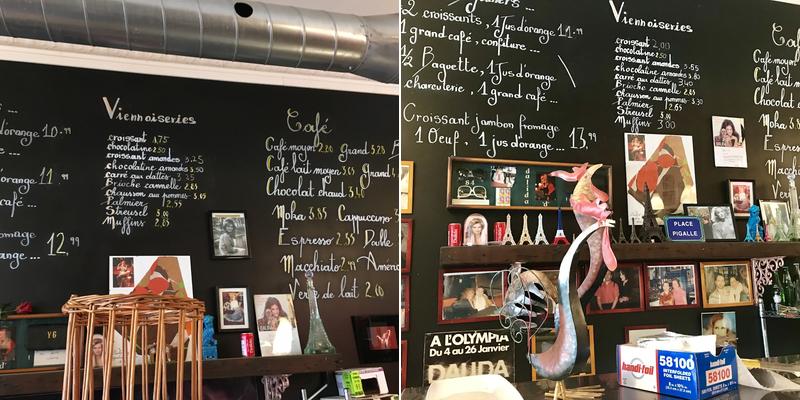 Viennoiseries
croissant 1.75
chocolatine 2.50
croissant amandes 3.25
chocolatine amandes 3.50
carré aux dattes 3.35
Brioche cannelle 2.65
chausson aux pommes 3.65
Palmier 2.55
Streusel
Muffins 2.65
d'orange 10.99
...
orange 11.99
café ...
omage
... 12.99
Café
Café moyen 2.20 Grand 3.25
Café lait moyen 3.05 Grand
Chocolat chaud 3.40
Moka 3.85 Cappuccino
Espresso 2.55 Double
Macchiato Améri
Verre de lait 2.00
2 croissants, 1 Jus d'orange 11.99
1 grand café, confiture ...
1/2 Baguette, 1 Jus d'orange
charcuterie, 1 grand café ...
Croissant jambon fromage
1 Oeuf, 1 jus d'orange ... 13.99
Viennoiseries
croissant 2.00
chocolatine 2.50
croissant amandes 3.55
chocolatine amandes 3.80
carré aux dattes 3.40
Brioche cannelle 2.85
chausson aux pommes 3.30
Palmier
Streusel
Muffins 3.00
Café moyen
Café lait m
Chocolat
Moka 3.8
Espress
Macchi
Verre
84
dalida
PLACE
PIGALLE
A L'OLYMPIA
Du 4 au 26 Janvier
DALIDA
handi-foil
58100
INTERFOLDED
FOIL SHEETS
handi-foil
58100
INTERFOLDED
FOIL SHEETS